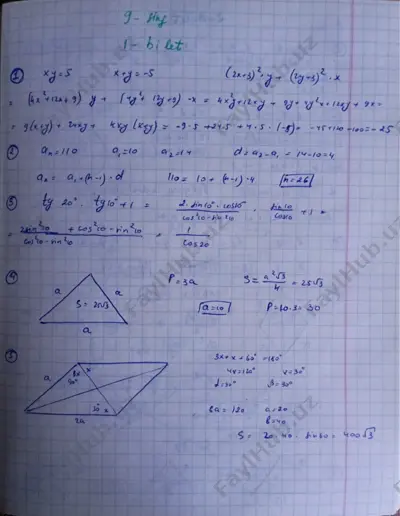 9-sinf
1-bilet
① xy=5 x+y=-5 (2x+3)²·y + (2y+3)²·x
= (4x²+12x+9)·y + (4y²+12y+9)·x = 4x²y+12xy+9y+4y²x+12xy+9x=
= 9(x+y)+24xy+4xy(x+y) = -9·5+24·5+4·5·(-5)= -45+120-100=-25
② aₙ=110 a₁=10 a₂=14 d=a₂-a₁=14-10=4
aₙ = a₁+(n-1)·d 110=10+(n-1)·4 n=26
③ tg 20°·tg10°+1 = 2·sin10°·cos10° / cos²10-sin²10 · sin10/cos10 +1 =
= 2sin²10+cos²10-sin²10 / cos²10-sin²10 = 1/cos20
④ P=3a S=a²√3/4=25√3
a S=25√3 a
a=10 P=10·3=30
a
⑤ 3x+x+60°=180°
a 4x=120° x=30°
d=90° β=30°
30° x
2a 2a=120 a=20
b=40
S=20·40·sin60=400√3
FaylHub.uz